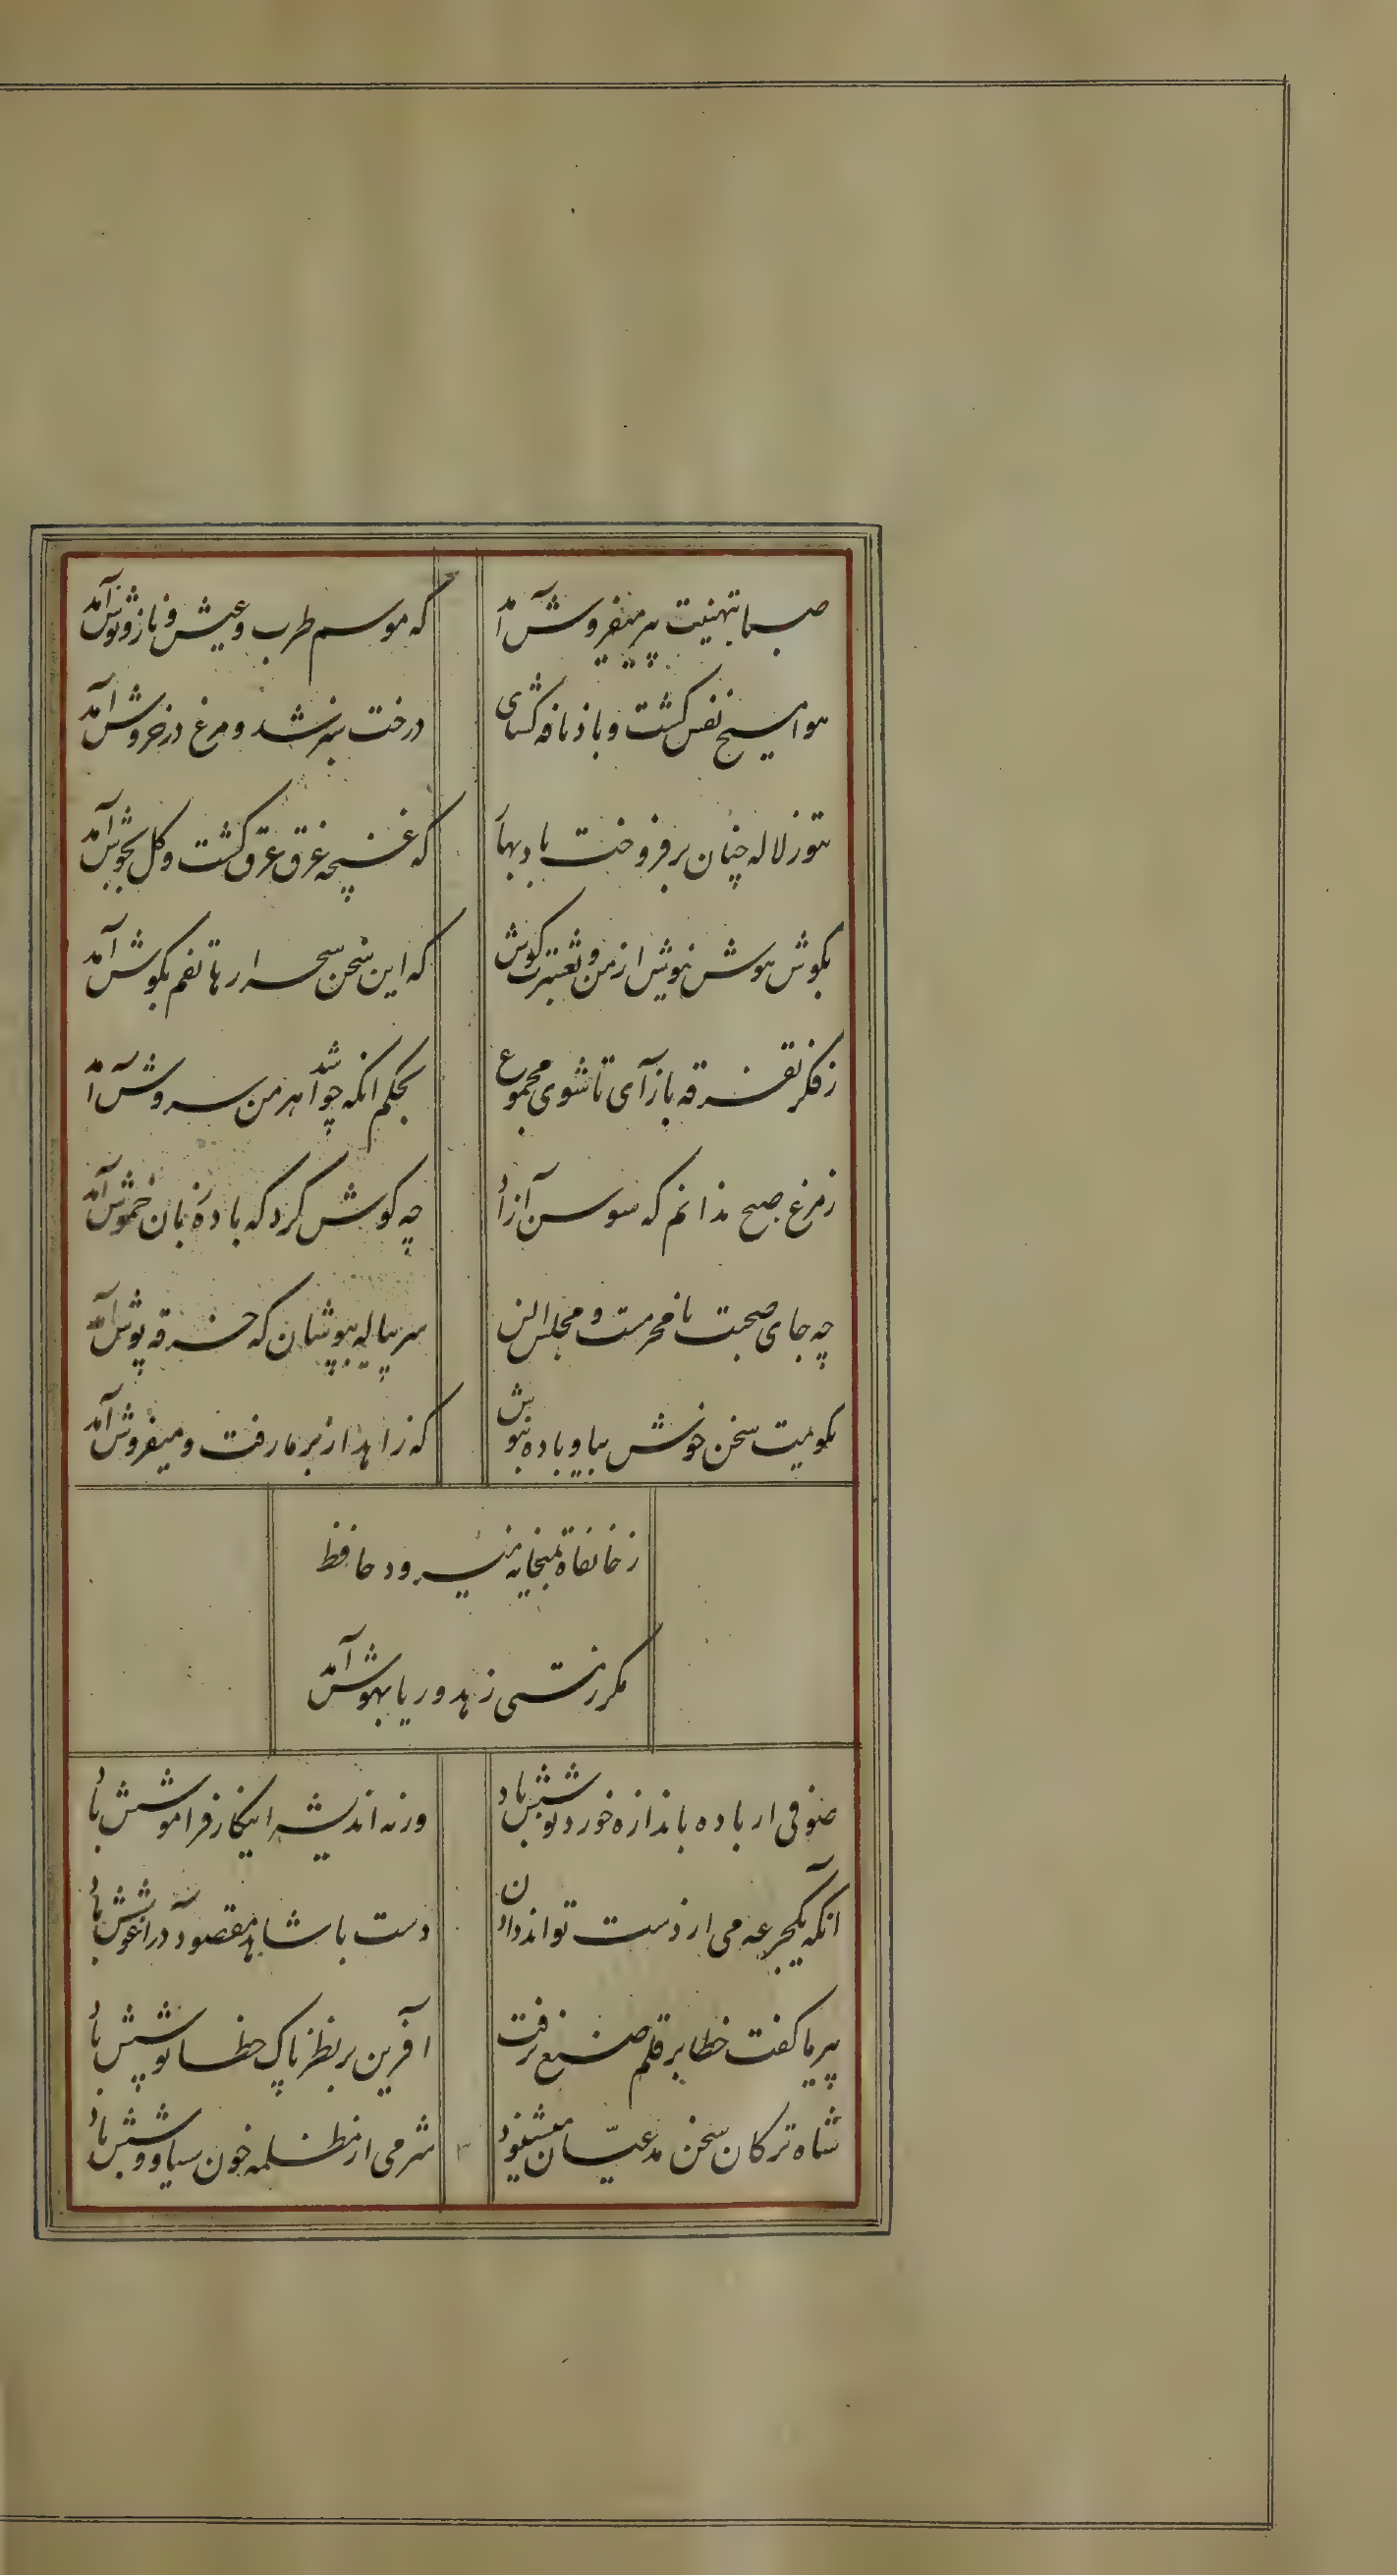 صبا بتهنیت پیر میفروش آمد که موسم طرب و عیش و ناز و نوش آمد
هوا مسیح نفس کشت و باد نافه کشای درخت سبز شد و مرغ در خروش آمد
تنور لاله چنان بر فروخت باد بهار که غنچه غرق عرق کشت و کل بجوش آمد
بکوش هوش نیوش از من و بعشرت کوش که این سخن سحر از هاتفم بکوش آمد
ز فکر تفرقه باز آی تا شوی مجموع بحکم آنکه چو شد اهرمن سروش آمد
ز مرغ صبح ندانم که سوسن آزاد چه کوش کرد که با ده زبان خموش آمد
چه جای صحبت نامحرمست و مجلس انس سر پیاله بپوشان که خرقه پوش آمد
بکویمت سخن خوش بیا و باده بنوش که زاهد از بر ما رفت و میفروش آمد
ز خانقاه بمیخانه میرود حافظ
مکر ز مستی زهد و ریا بهوش آمد
صوفی ار باده باندازه خورد نوشش باد ورنه اندیشه اینکار فراموشش باد
آنکه یکجرعه می از دست تواند دادن دست با شاهد مقصود در آغوشش باد
پیر ما کفت خطا بر قلم صنع نرفت آفرین بر نظر پاک خطا پوشش باد
شاه ترکان سخن مدعیّان میشنود شرمی از مظلمه خون سیاووشش باد